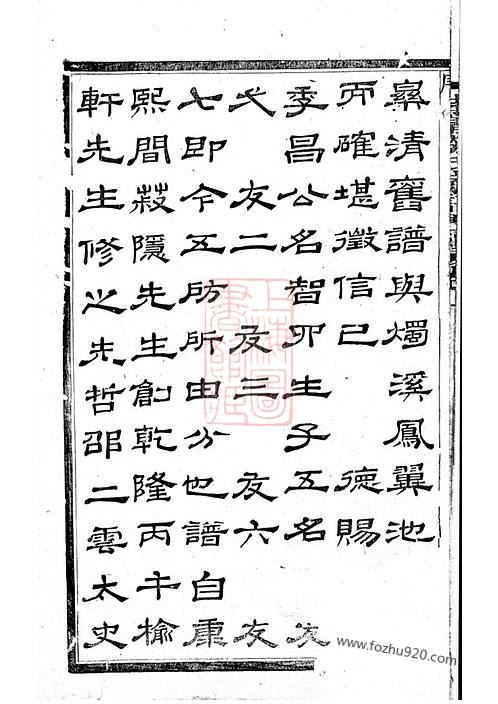 纍清舊譜與燭溪鳳翼池
而確堪徵信已　德賜
季昌公名智卯生子五名　友
弋　友二　友三　友六　友
七即今五房所由分也譜自康
熙間菽隱先生創乾隆丙午榆
軒先生修之先哲邵二雲太史
上海圖書館藏
www.fozhu920.com